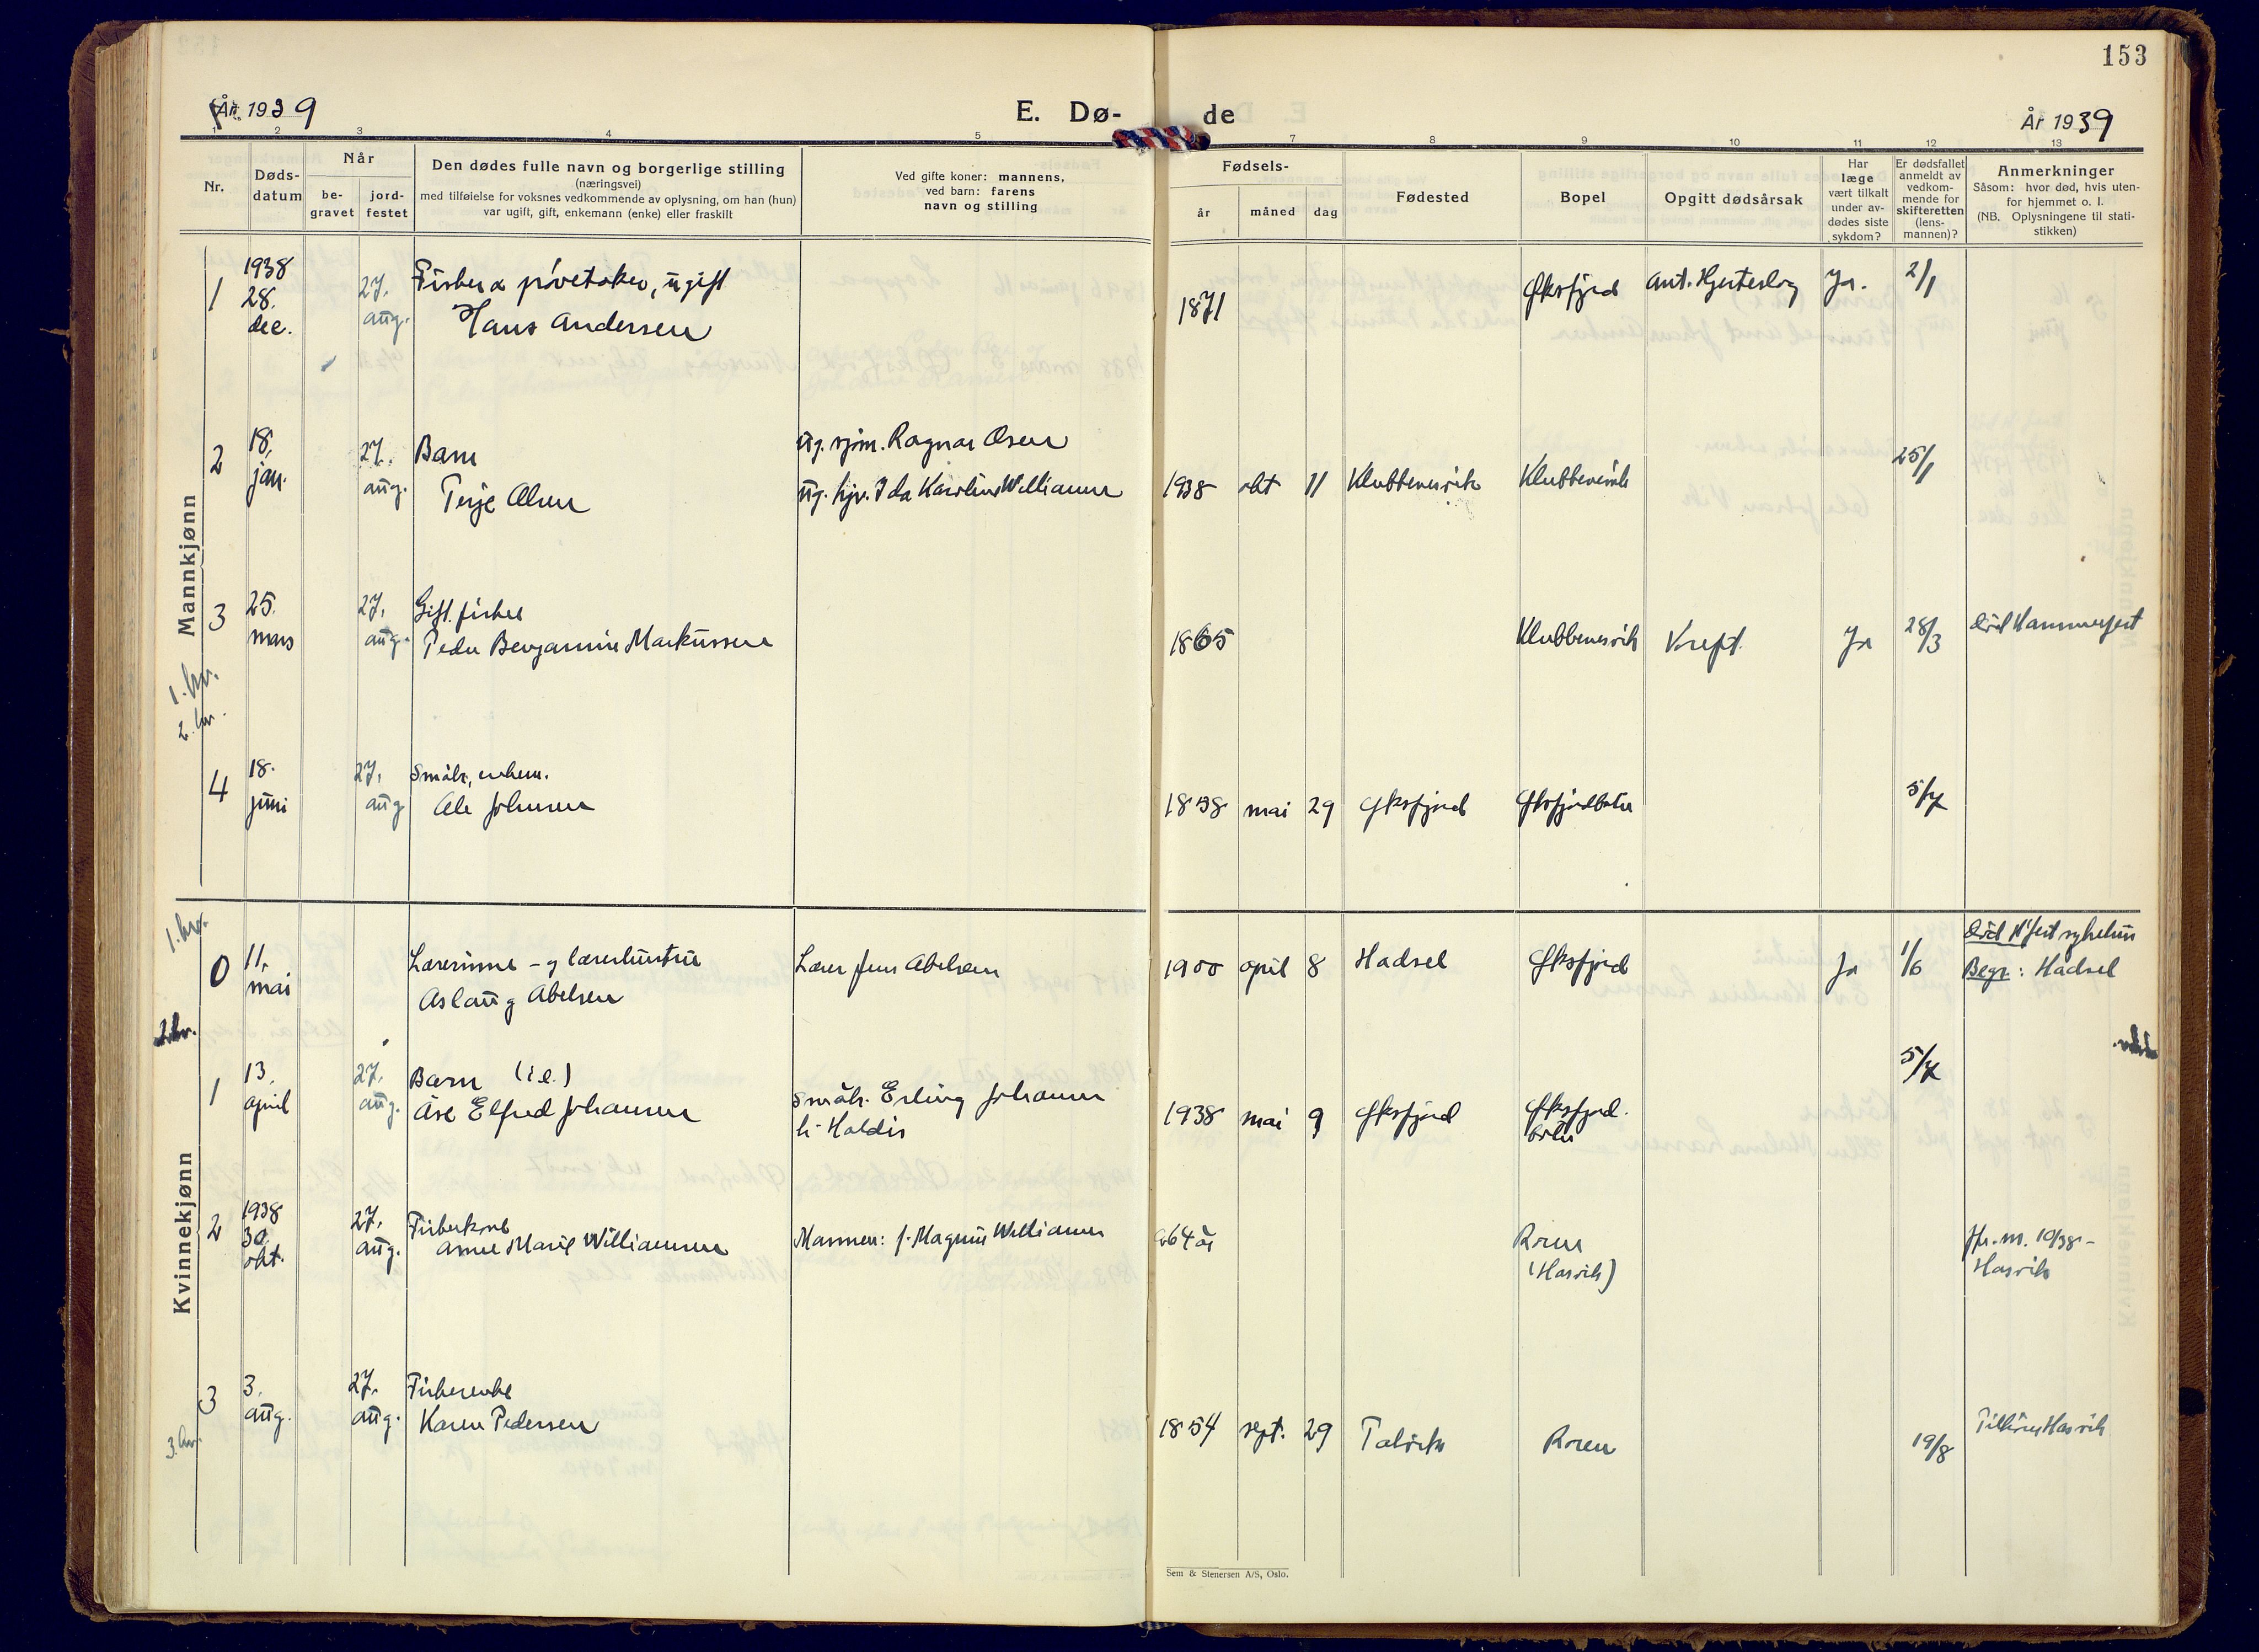 153
År 1939
E. Dø-
de
År 1939
1 2 3 4 5 7 8 9 10 11 12 13
Nr.
Døds-
datum
Når
be-
gravet
jord-
festet
Den dødes fulle navn og borgerlige stilling
(næringsvei)
med tilføielse for voksnes vedkommende av oplysning, om han (hun)
var ugift, gift, enkemann (enke) eller fraskilt
Ved gifte koner: mannens,
ved barn: farens
navn og stilling
Fødsels-
år måned dag
Fødested
Bopel
Opgitt dødsårsak
Har
læge
vært tilkalt
under av-
dødes siste
sykdom?
Er dødsfallet
anmeldt av
vedkom-
mende for
skifteretten
(lens-
mannen)?
Anmerkninger
Såsom: hvor død, hvis uten-
for hjemmet o. l.
(NB. Oplysningene til stati-
stikken)
Mannkjønn
1
1938
28.
dec.
27.
aug.
Fisker & prøvetaker, ugift
Hans Andersen
1871
Øksfjord
Ant. Hjerteslag
Ja.
2/1
2
18.
jan.
27.
aug.
Barn
Terje Olsen
ug. sjøm. Ragnar Olsen
ug. hjv. Ida Karoline Williamsen
1938 okt 11 Klubbenesvik Klubbenesvik
25/1
3
25.
mars
27.
aug.
Gift. fisker
Peder Benjamin Markussen
1865
Klubbenesvik
Kreft.
Ja
28/3
død Hammerfest
1. kv.
2. kv.
4
18.
juni
27.
aug
Småbr., enkem.
Ole Johnsen
1858 mai 29 Øksfjord Øksfjordbotn
5/7
Kvinnekjønn
1. kv.
0
11.
mai
Lærerinne - og lærerhustru
Aslaug Abelsen
Lærer Jens Abelsen
1900 april 8 Hadsel Øksfjord
Ja
1/6
død H'fest sykehus
Begr.: Hadsel
2kv.
1
13.
april
27.
aug.
Barn (i e.)
Åse Elfred Johansen
Småbr. Erling Johansen
h. Haldis
1938 mai 9 Øksfjord Øksfjord.
botn
5/7
2
1938
30.
okt.
27.
aug.
Fiskerkone
Anne Marie Williamsen
Mannen: f. Magnus Williamsen
64 år
(Hasvik)
10/38 -
Hasvik
3
3.
aug.
27.
aug.
Fiskerenke
Karen Pedersen
1854 sept. 29 Talvik
19/8
Tilhører Hasvik
3. kv.
Sem & Stenersen A/S, Oslo.